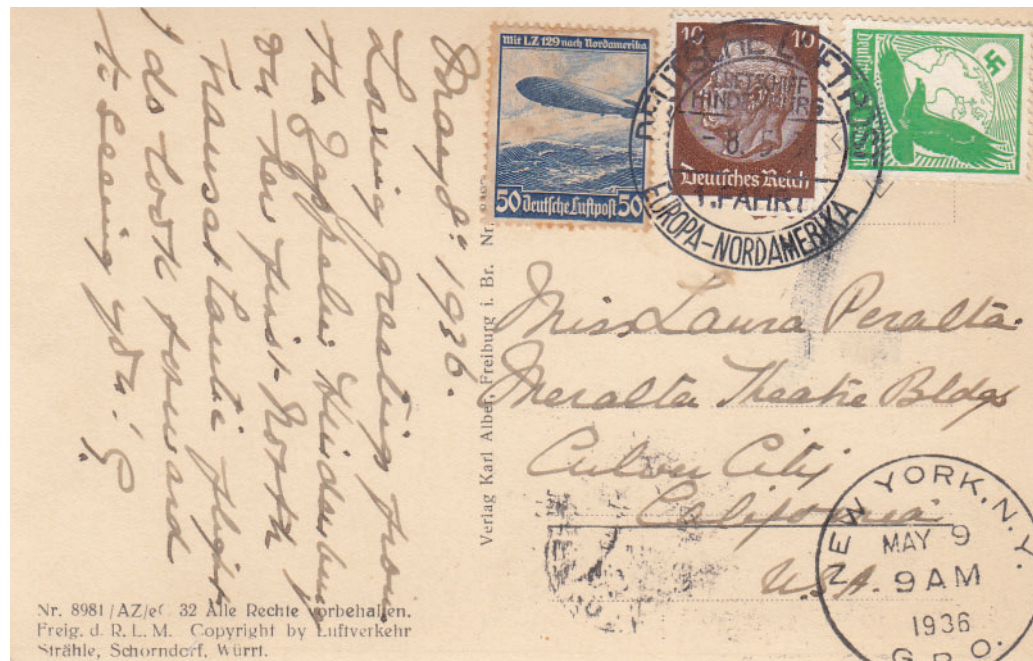 May 8" 1936.
Loving greetings from
the Zeppelin Hindenburg
on her first North
transatlantic flight
I do look forward
to seeing you. G.
Nr. 8981/AZ/e 32 Alle Rechte vorbehalten.
Freig. d. R. L. M. Copyright by Luftverkehr
Strähle, Schorndorf, Württ.
Verlag Karl Alber, Freiburg i. Br. Nr.
Mit LZ 129 nach Nordamerika
50 Deutsche Luftpost 50
10 10
Deutsches Reich
DEUTSCHE LUFTPOST
LUFTSCHIFF
HINDENBURG
- 8. 5.
1. FAHRT
EUROPA-NORDAMERIKA
Miss Laura Peralta.
Meralta Theatre Bldg
Culver City
California
U.S.A.
NEW YORK, N.Y.
MAY 9
9 AM
1936
G.P.O.